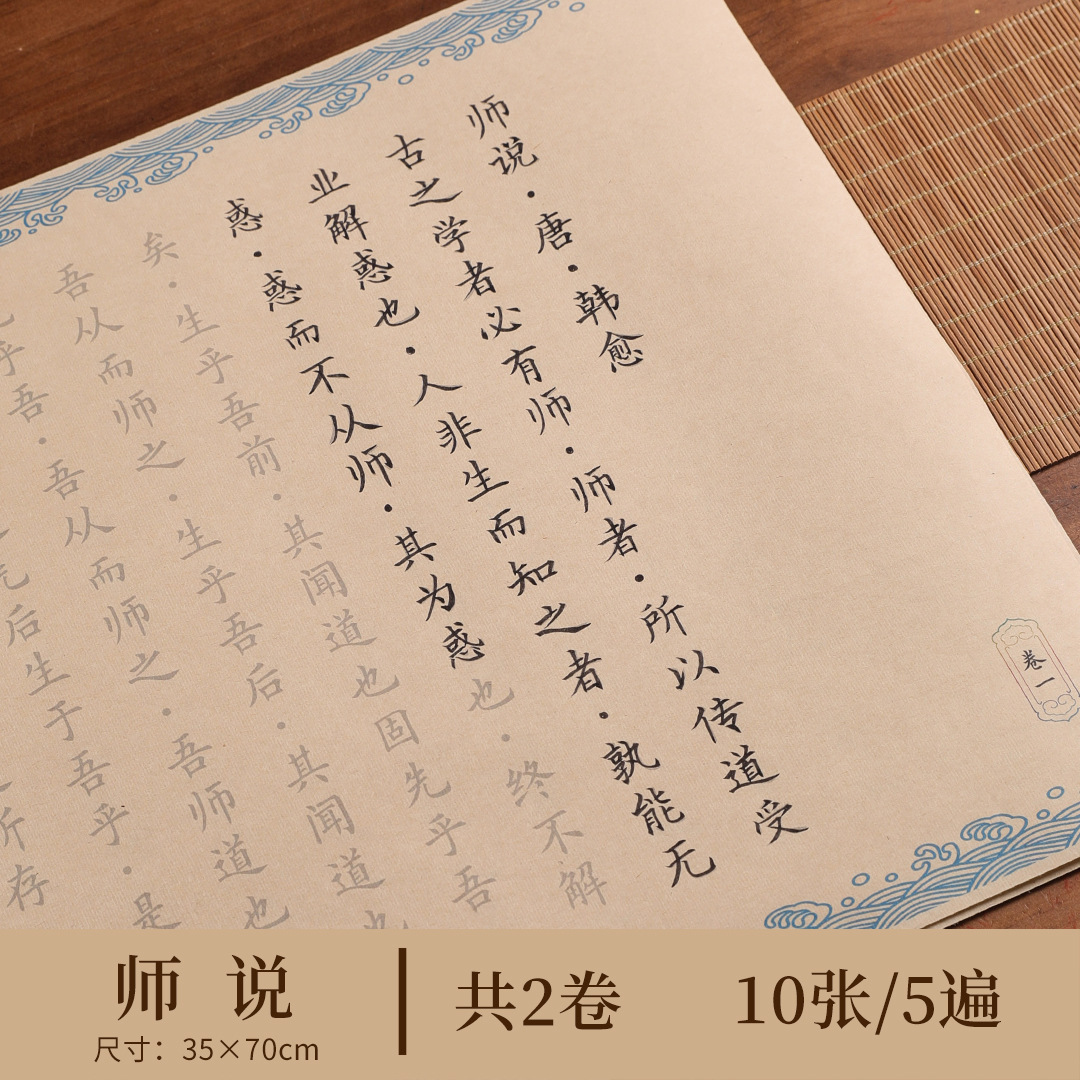 师说·唐·韩愈
古之学者必有师·师者·所以传道受
业解惑也·人非生而知之者·孰能无
惑·惑而不从师·其为惑也·终不解
矣·生乎吾前·其闻道也固先乎吾
吾从而师之·生乎吾后·其闻道也
乎吾·吾从而师之·吾师道也
后生于吾乎·是
所存
卷一
师说
尺寸：35×70cm
共2卷
10张/5遍